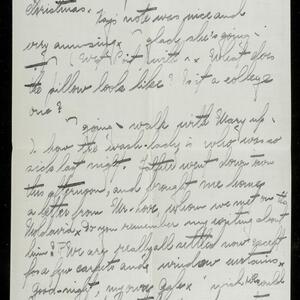 Christmas.
Kay's note was nice and
very amusing. glad she's going
West Point with. What does
the pillow look like? Is it a college
one?
going walk with Mary up
how the wash-lady is who was so
sick last night. Father went down town
this afternoon, and brought me home
a letter from Mr. whom we met on the
Do you remember my writing about
him? We are really all settled now except
for a few carpets and window curtains.
Good-night, my own I wish I could